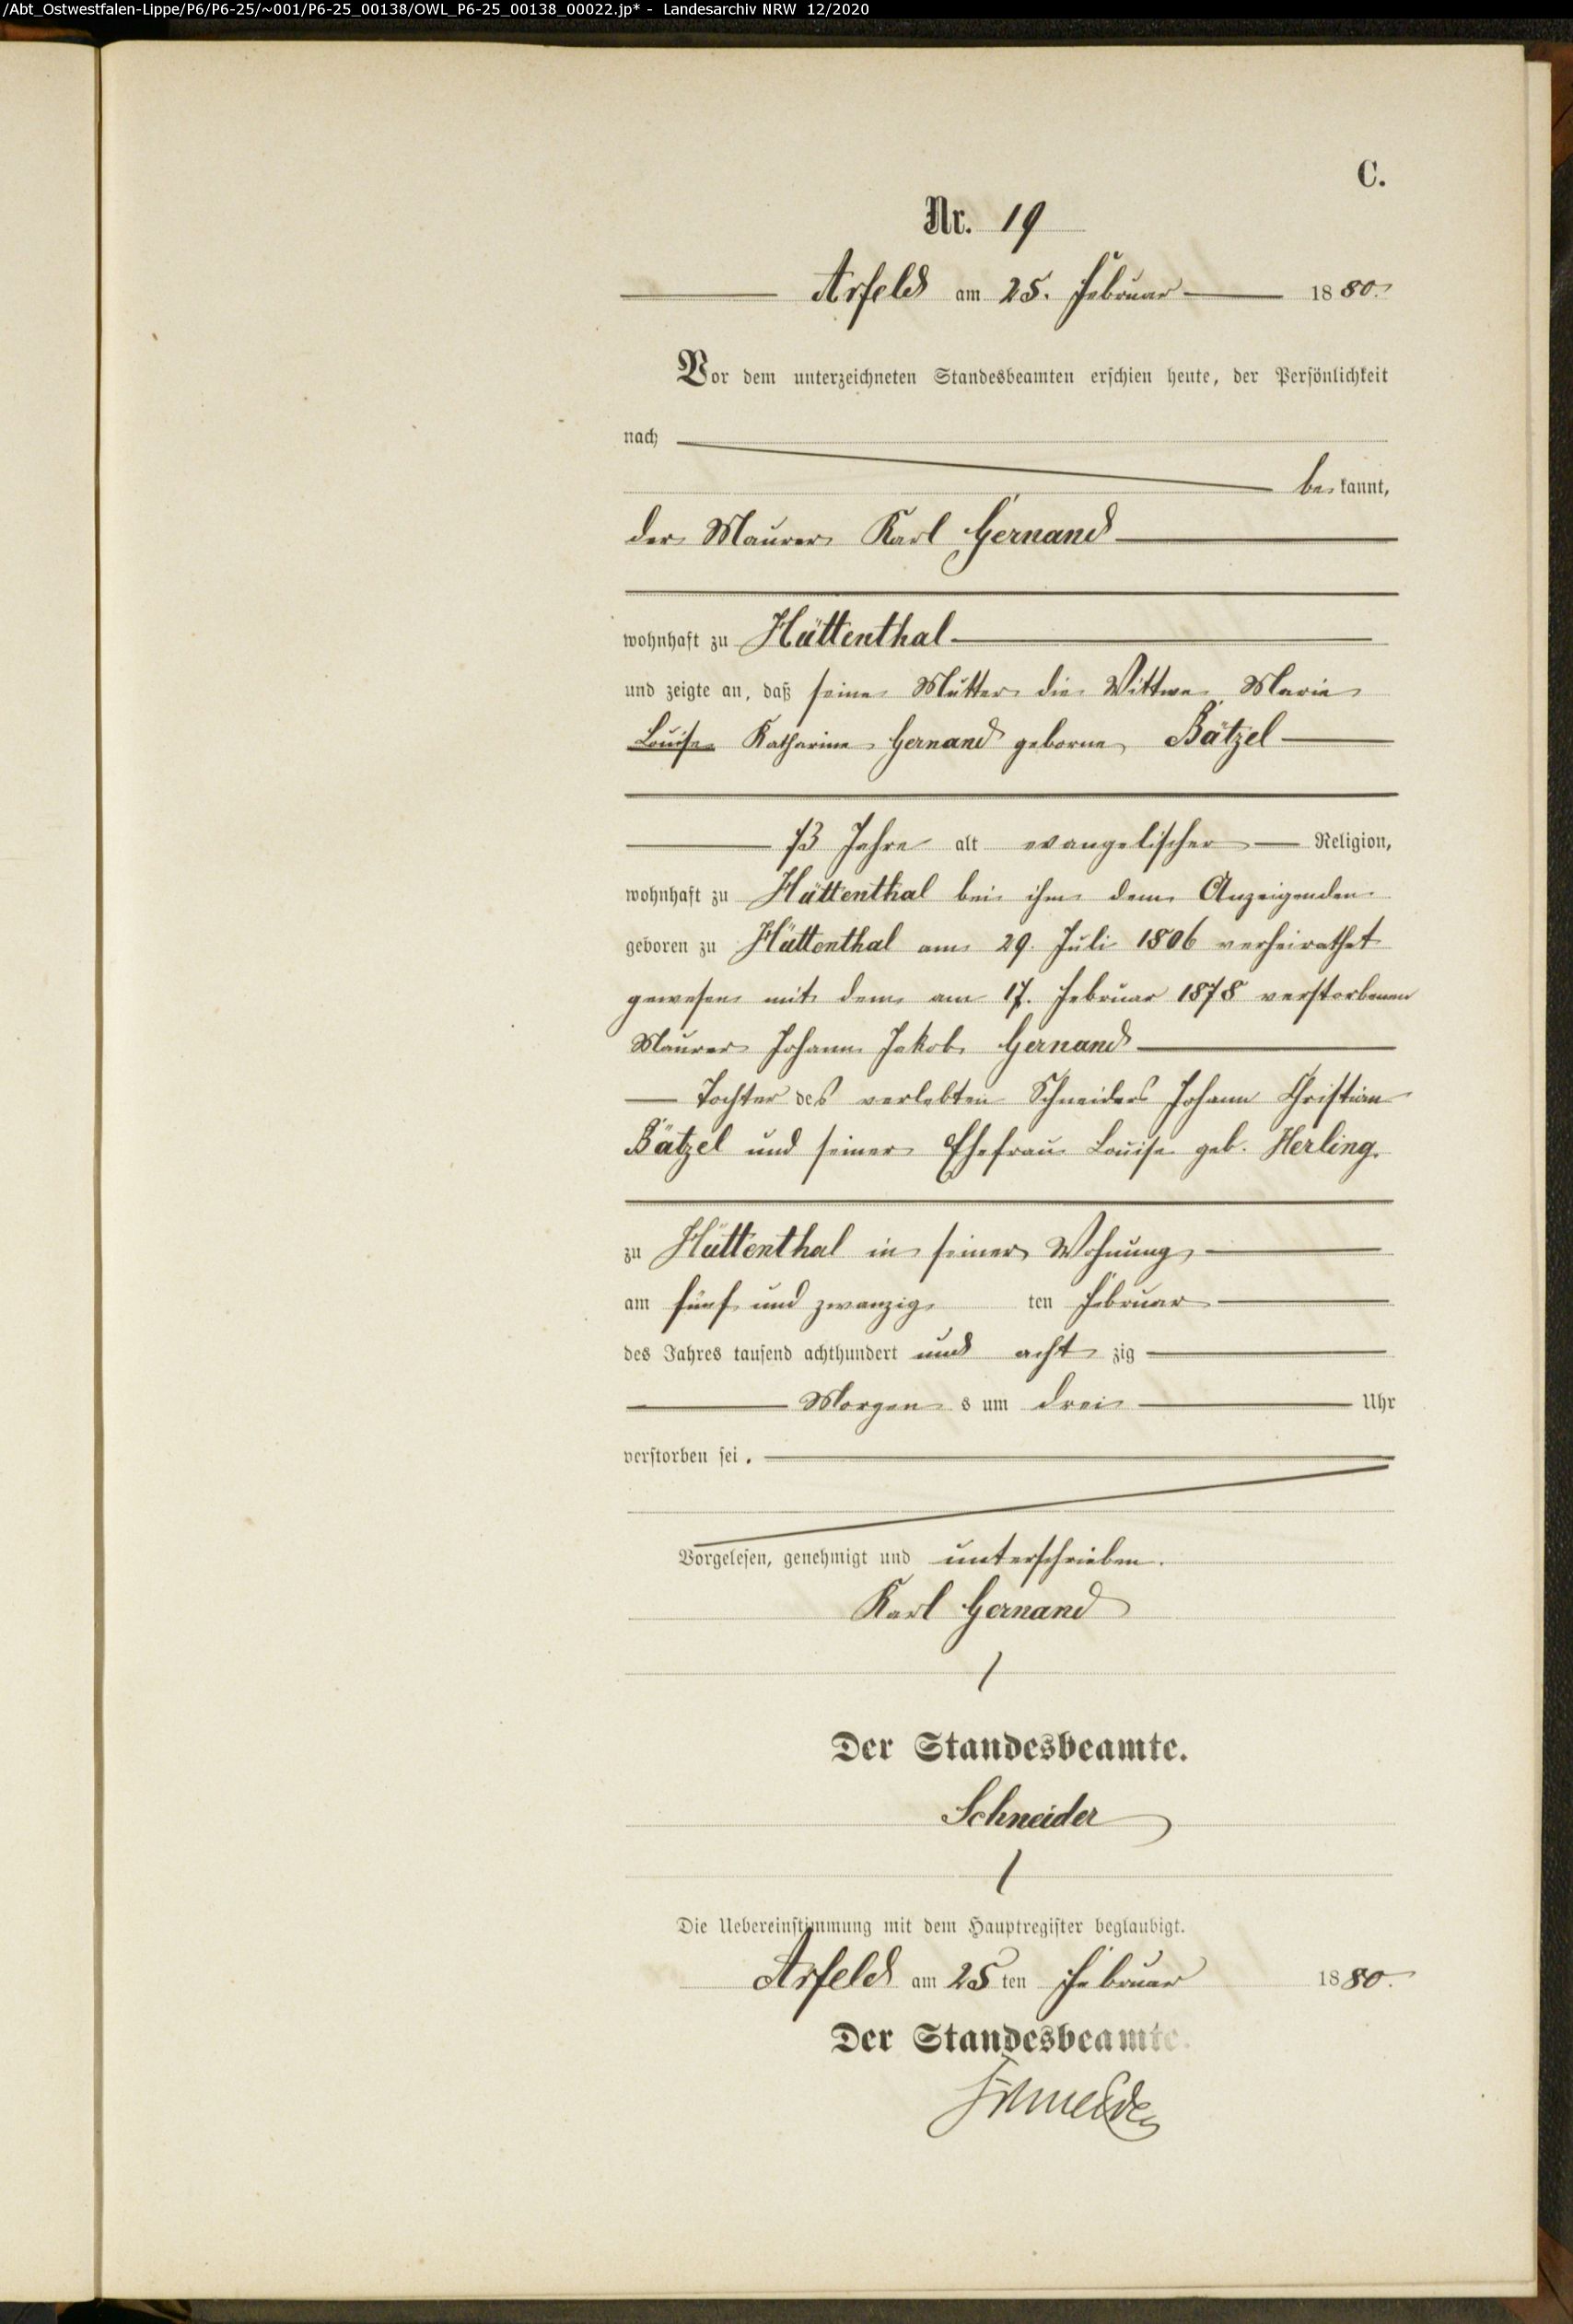 /Abt_Ostwestfalen-Lippe/P6/P6-25/~001/P6-25_00138/OWL_P6-25_00138_00022.jp* - Landesarchiv NRW 12/2020
C.
Nr. 19
Arfeld am 25. Februar 1880.
Vor dem unterzeichneten Standesbeamten erschien heute, der Persönlichkeit
nach
bekannt,
der Maurer Karl Gernand
wohnhaft zu Hüttenthal
und zeigte an, daß seine Mutter die Wittwe Marie
Louise Katharine Gernand geborne Bätzel
73 Jahre alt evangelischer Religion,
wohnhaft zu Hüttenthal bei ihm dem Anzeigenden
geboren zu Hüttenthal am 29. Juli 1806 verheirathet
gewesen mit dem am 17. Februar 1878 verstorbenen
Maurer Johann Jakob Gernand
Tochter des verlebten Schneiders Johann Christian
Bätzel und seiner Ehefrau Louise geb. Herling.
zu Hüttenthal in seiner Wohnung
am fünf und zwanzig ten Februar
des Jahres tausend achthundert und acht zig
Morgen s um drei Uhr
verstorben sei.
Vorgelesen, genehmigt und unterschrieben.
Karl Gernand
Der Standesbeamte.
Schneider
Die Uebereinstimmung mit dem Hauptregister beglaubigt.
Arfeld am 25 ten Februar 1880.
Der Standesbeamte.
Schneider